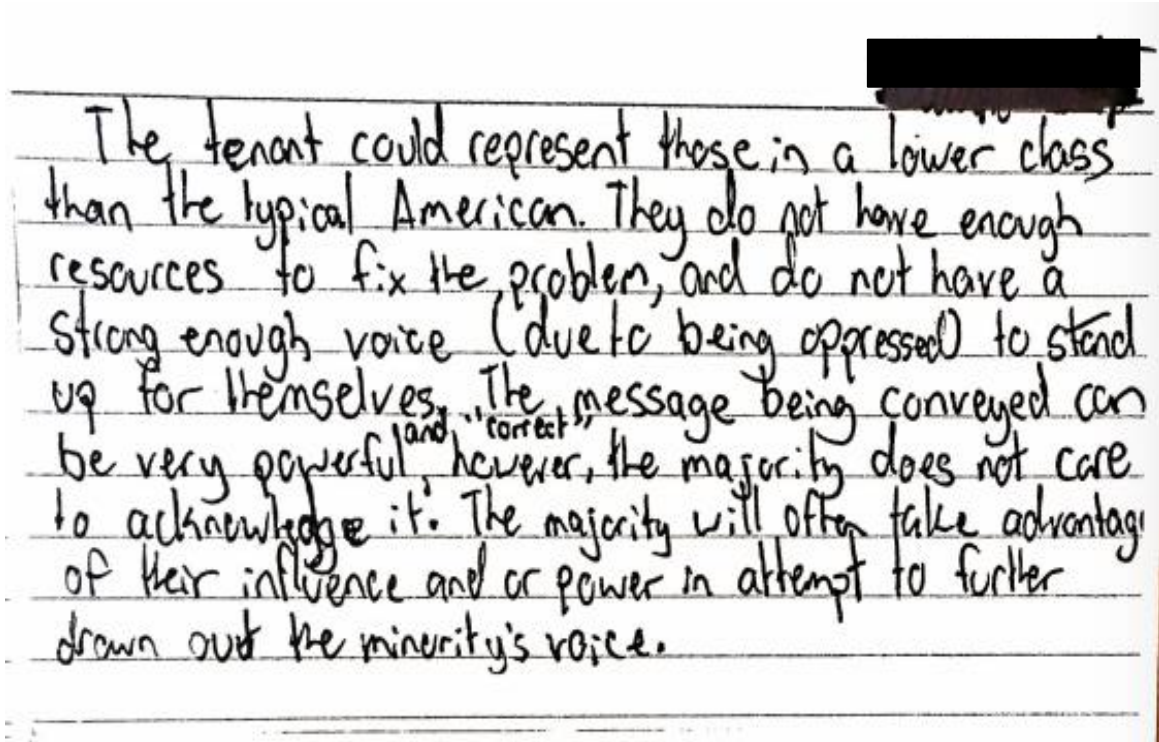 The tenant could represent those in a lower class
than the typical American. They do not have enough
resources to fix the problem, and do not have a
strong enough voice (due to being oppressed) to stand
up for themselves. The message being conveyed can
and "correct",
be very powerful however, the majority does not care
to acknowledge it. The majority will often take advantag
of their influence and or power in attempt to further
drown out the minority's voice.